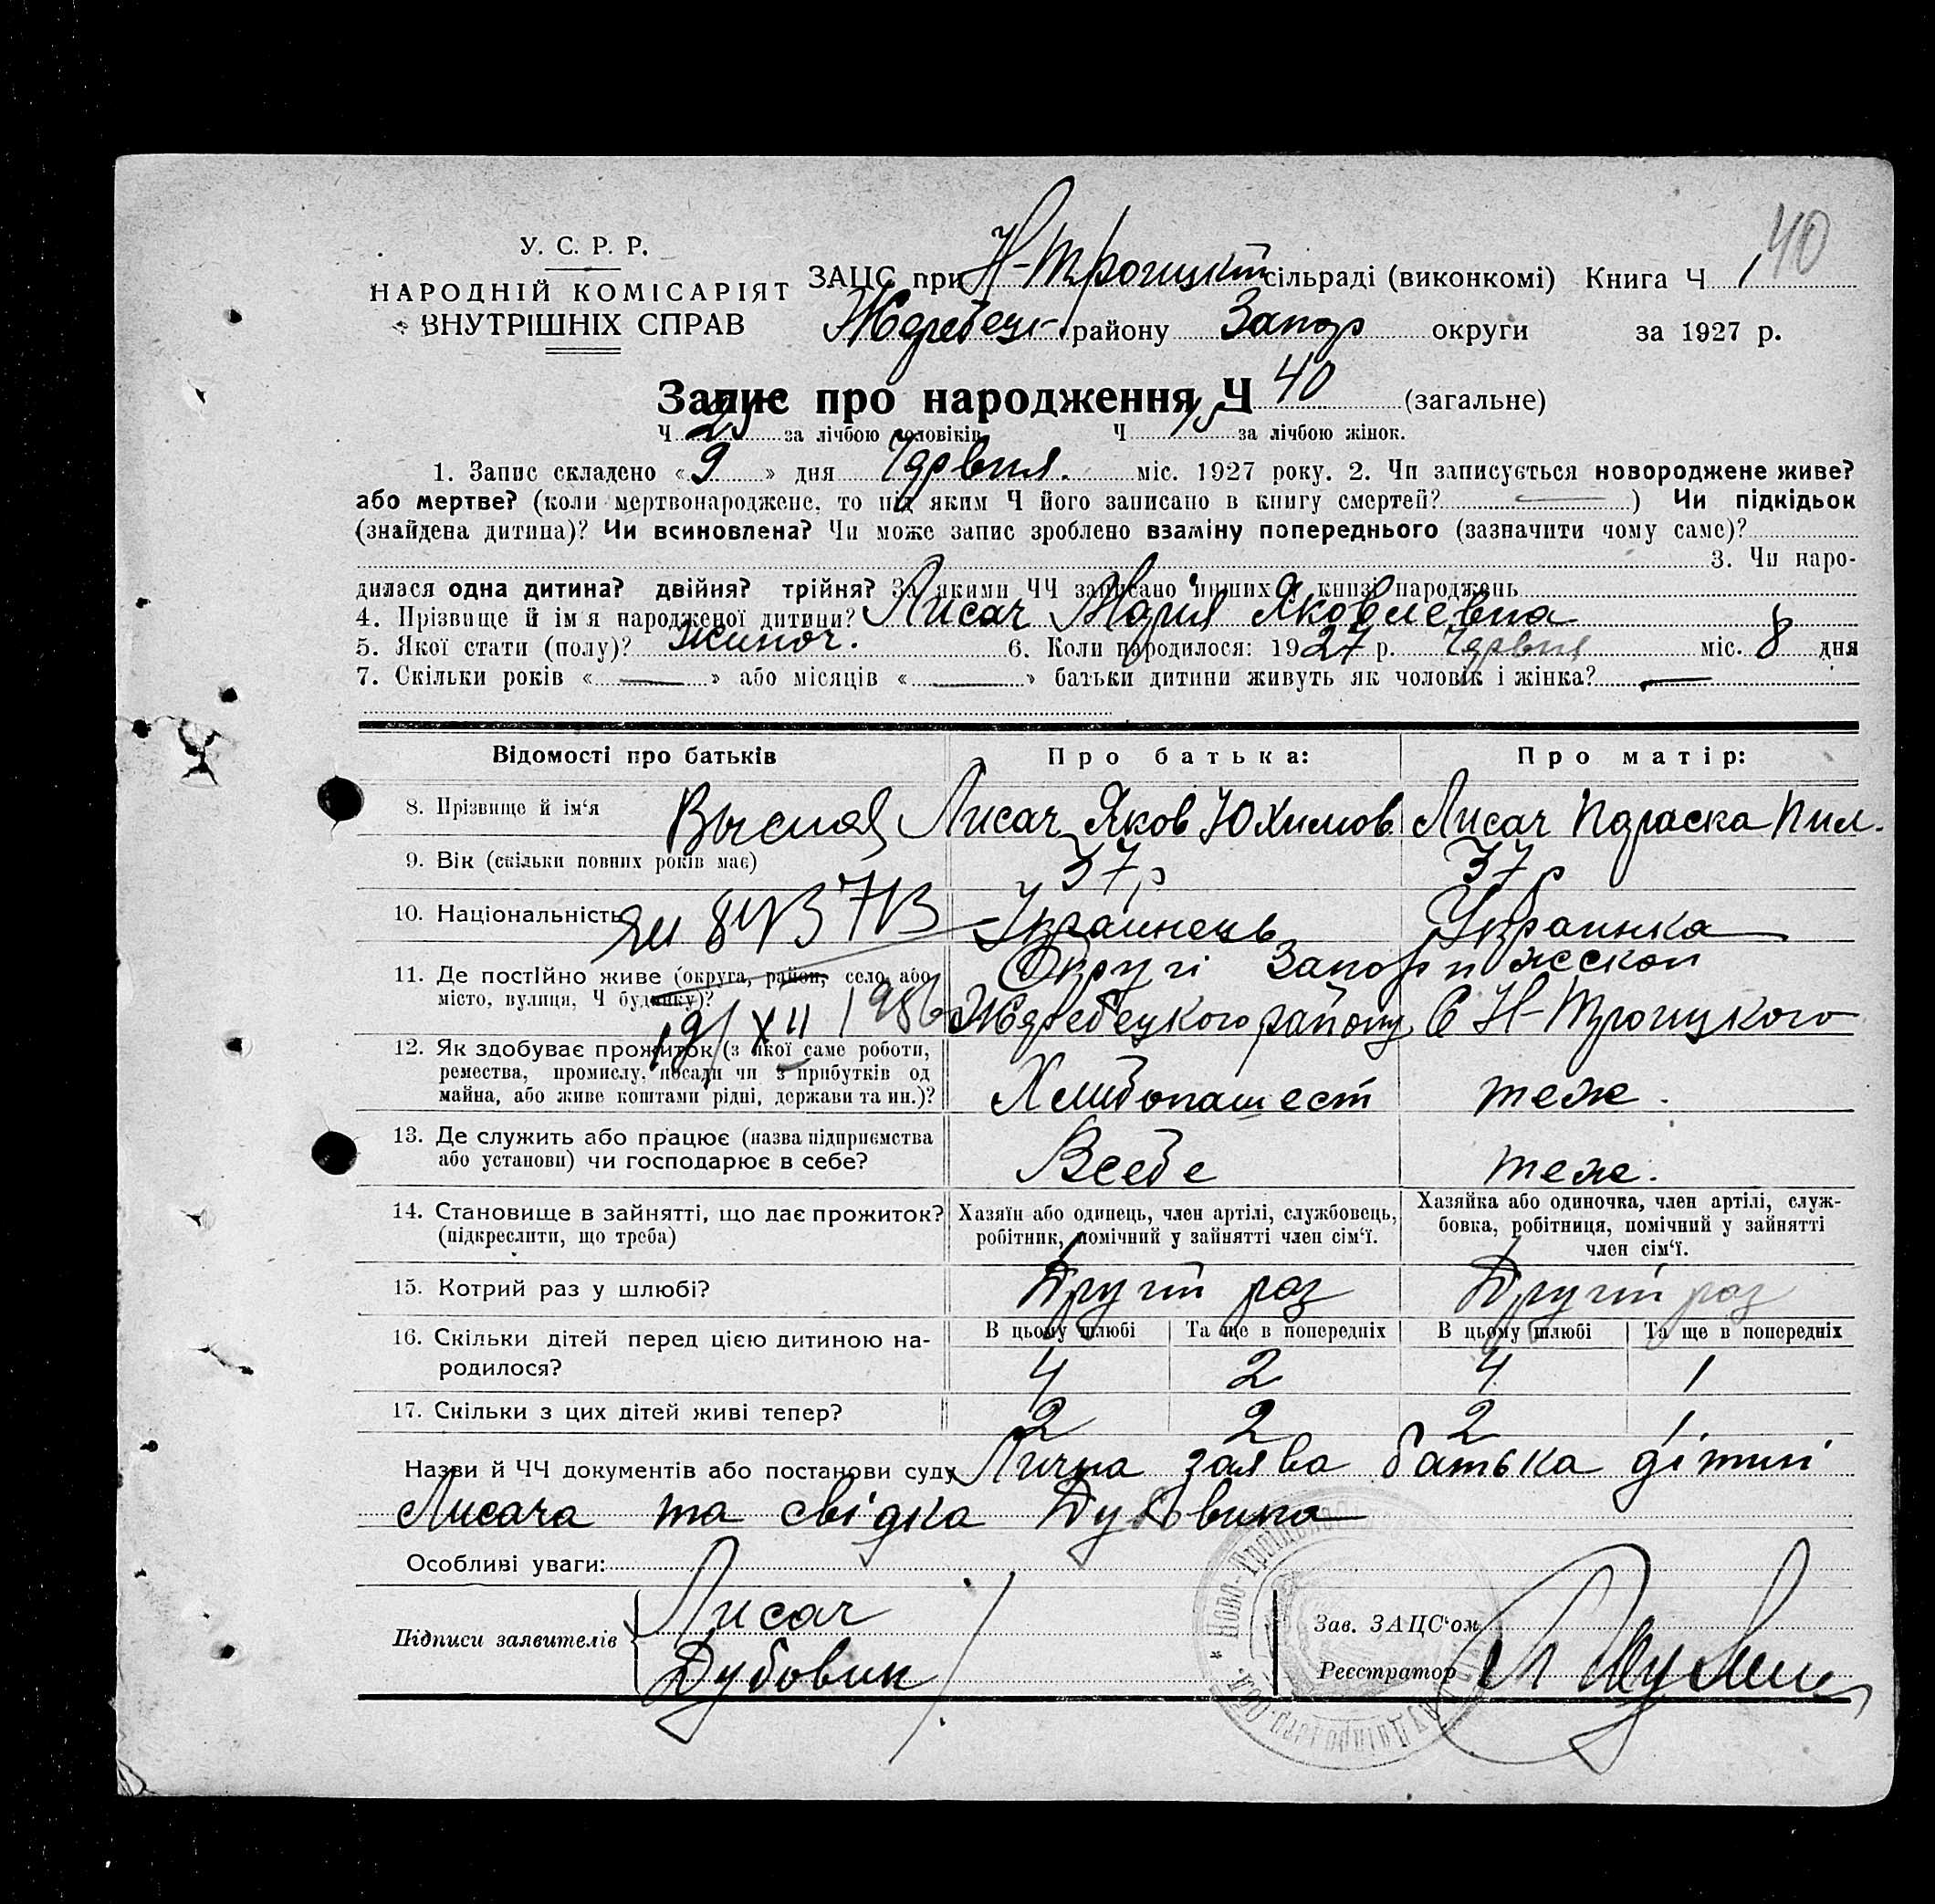 У. С. Р. Р.
НАРОДНІЙ КОМІСАРІЯТ
ВНУТРІШНІХ СПРАВ
40
ЗАЦС при Н-Троицкій сільраді (виконкомі) Книга Ч 1
Жеребець. району Запор округи за 1927 р.
Запис про народження Ч 40 (загальне)
Ч 25 за лічбою чоловіків Ч 15 за лічбою жінок.
1. Запис складено «9» дня Червня. міс. 1927 року. 2. Чи записується новороджене живе?
або мертве? (коли мертвонароджене, то під яким Ч його записано в книгу смертей? —) Чи підкідьок
(знайдена дитина)? Чи всиновлена? Чи може запис зроблено взаміну попереднього (зазначити чому саме)?
3. Чи наро-
дилася одна дитина? двійня? трійня? За якими ЧЧ записано инших в книзі народжень
4. Прізвище й ім'я народженої дитини? Лисач Мария Яковлевна
5. Якої стати (полу)? жиноч. 6. Коли народилося: 1927 р. Червня міс. 8 дня
7. Скільки років «—» або місяців «—» батьки дитини живуть як чоловік і жінка? —
Відомості про батьків Про батька: Про матір:
8. Прізвище й ім'я Лисач Яков Юхимов. Лисач Параска Пил.
9. Вік (скільки повних років має) 37 р 37 р
10. Національність Украинець Украинка
11. Де постійно живе (округа, район, село або Округи Запорижской
місто, вулиця, Ч будинку)? Жеребецкого району С Н-Троицкого
19/XII 1956
12. Як здобуває прожиток (з якої саме роботи,
ремества, промислу, посади чи з прибутків од
майна, або живе коштами рідні, держави та ин.)? Хлибопашест теж.
13. Де служить або працює (назва підприємства
або установи) чи господарює в себе? Всебе теж.
14. Становище в зайнятті, що дає прожиток? Хазяїн або одинець, член артілі, службовець, Хазяйка або одиночка, член артілі, служ-
(підкреслити, що треба) робітник, помічний у зайнятті член сім'ї. бовка, робітниця, помічний у зайнятті
член сім'ї.
15. Котрий раз у шлюбі? Другий раз Другий раз
16. Скільки дітей перед цією дитиною на- В цьому шлюбі Та ще в попередніх В цьому шлюбі Та ще в попередніх
родилося? 4 2 4 1
17. Скільки з цих дітей живі тепер? 2 2 2 1
Назви й ЧЧ документів або постанови суду Лична заява батька дітині
Лисача та свідка Дубовика
Особливі уваги:
Підписи заявителів Лисач
Дубовик
Зав. ЗАЦС'ом
Реєстратор